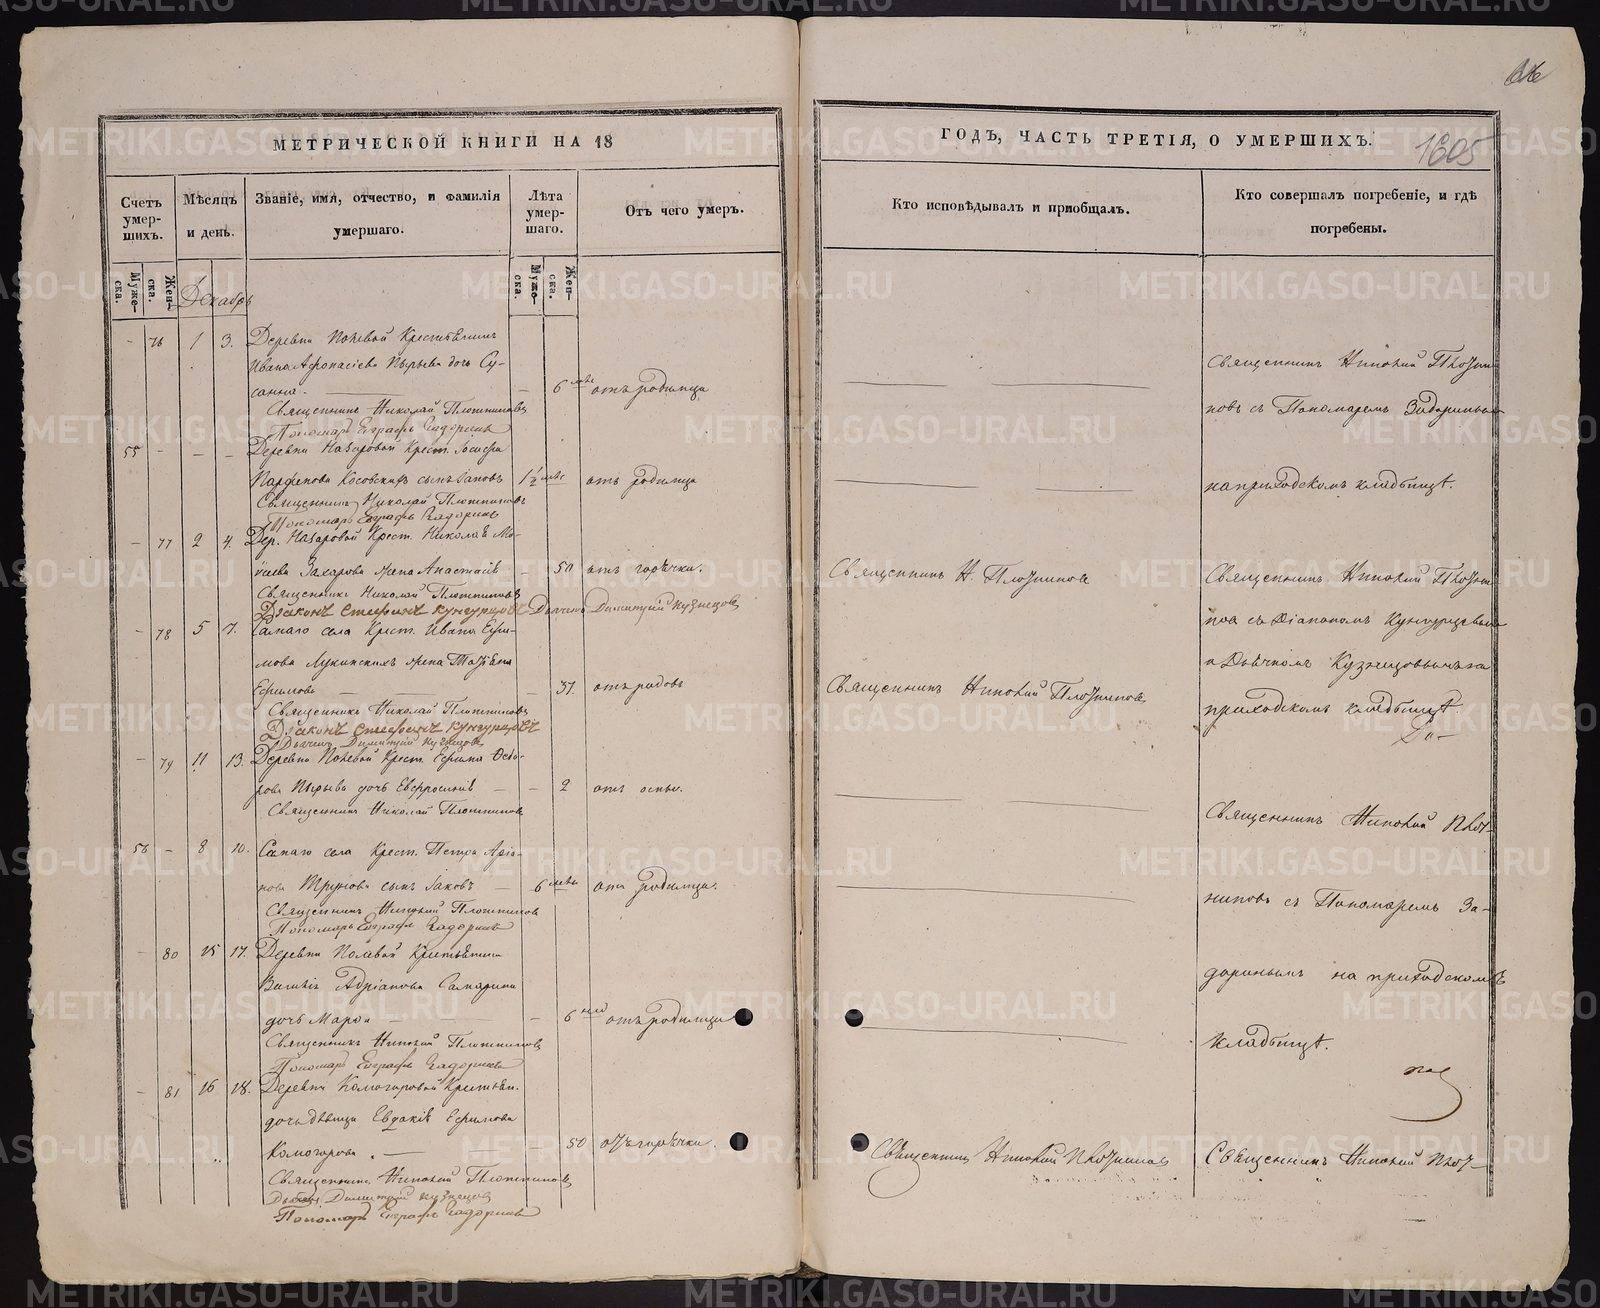 МЕТРИЧЕСКОЙ КНИГИ НА 18
Счетъ умер-шихъ.
Муже-ска.
Жен-ска.
Мѣсяцъ и день.
Званіе, имя, отчество, и фамилія умершаго.
Лѣта умер-шаго.
Муже-ска.
Жен-ска.
Отъ чего умеръ.
Декабрь
- 76 1 3. Деревни Полевой Крестьянина
Ивана Афонасіева Пырьева дочь Су-
санна. - 6 отъ родимца
Священникъ Николай Плотниковъ
Пономарь Евграфъ Задоринъ
55 - - - Деревни Назаровой Крест. Іосифа
Парфенова Косовскихъ сынъ 1½ отъ родимца
Священникъ Николай Плотниковъ
Пономарь Евграфъ Задоринъ
- 77 2 4. Дер. Назаровой Крест. Николая Мо-
исеева Захарова жена Анастасія - 50 отъ горячки.
Священникъ Николай Плотниковъ
Діаконъ Стефанъ Кунгурцовъ Дьячекъ Димитрій Кузнецовъ
- 78 5 7. Самаго села Крест. Ивана Ефи-
мова Лукинскихъ жена Татьяна
Ефимова - 37. отъ родовъ
Священникъ Николай Плотниковъ
Діаконъ Стефанъ Кунгурцовъ
Дьячекъ Димитрій Кузнецовъ
- 79 11 13. Деревни Полевой Крест. Ефима Ѳедо-
рова Пырьева дочь Евфросинія - - 2 отъ оспы.
Священникъ Николай Плотниковъ
56 - 8 10. Самаго села Крест. Петра
сынъ Іаковъ - 6 отъ родимца.
Священникъ Николай Плотниковъ
Пономарь Евграфъ Задоринъ
- 80 15 17. Деревни Полевой Крестьянина
Адріанова Самарина
дочь - 6 отъ родимца
Священникъ Николай Плотниковъ
Пономарь Евграфъ Задоринъ
- 81 16 18. Деревни Комогоровой Крестьян.
дочь дѣвица Евдокія Ефимова
Комогорова. - 50 отъ горячки.
Священникъ Николай Плотниковъ
Дьячекъ Димитрій Кузнецовъ
Пономарь Евграфъ Задоринъ
ГОДЪ, ЧАСТЬ ТРЕТІЯ, О УМЕРШИХЪ.
1605
Кто исповѣдывалъ и приобщалъ.
Кто совершалъ погребеніе, и гдѣ погребены.
Священникъ Николай Плотни
ковъ съ Пономаремъ Задоринымъ
на приходскомъ кладбищѣ.
Священникъ Н. Плотниковъ
Священникъ Николай Плотни
ковъ съ Діакономъ Кунгурцовымъ
и Дьячкомъ Кузнецовымъ на
Священникъ Николай Плотниковъ
приходскомъ кладбищѣ.
Священникъ Николай Плот-
никовъ съ Пономаремъ За-
доринымъ на приходскомъ
кладбищѣ.
Священникъ Николай Плотниковъ
Священникъ Николай Плот-
METRIKI.GASO-URAL.RU